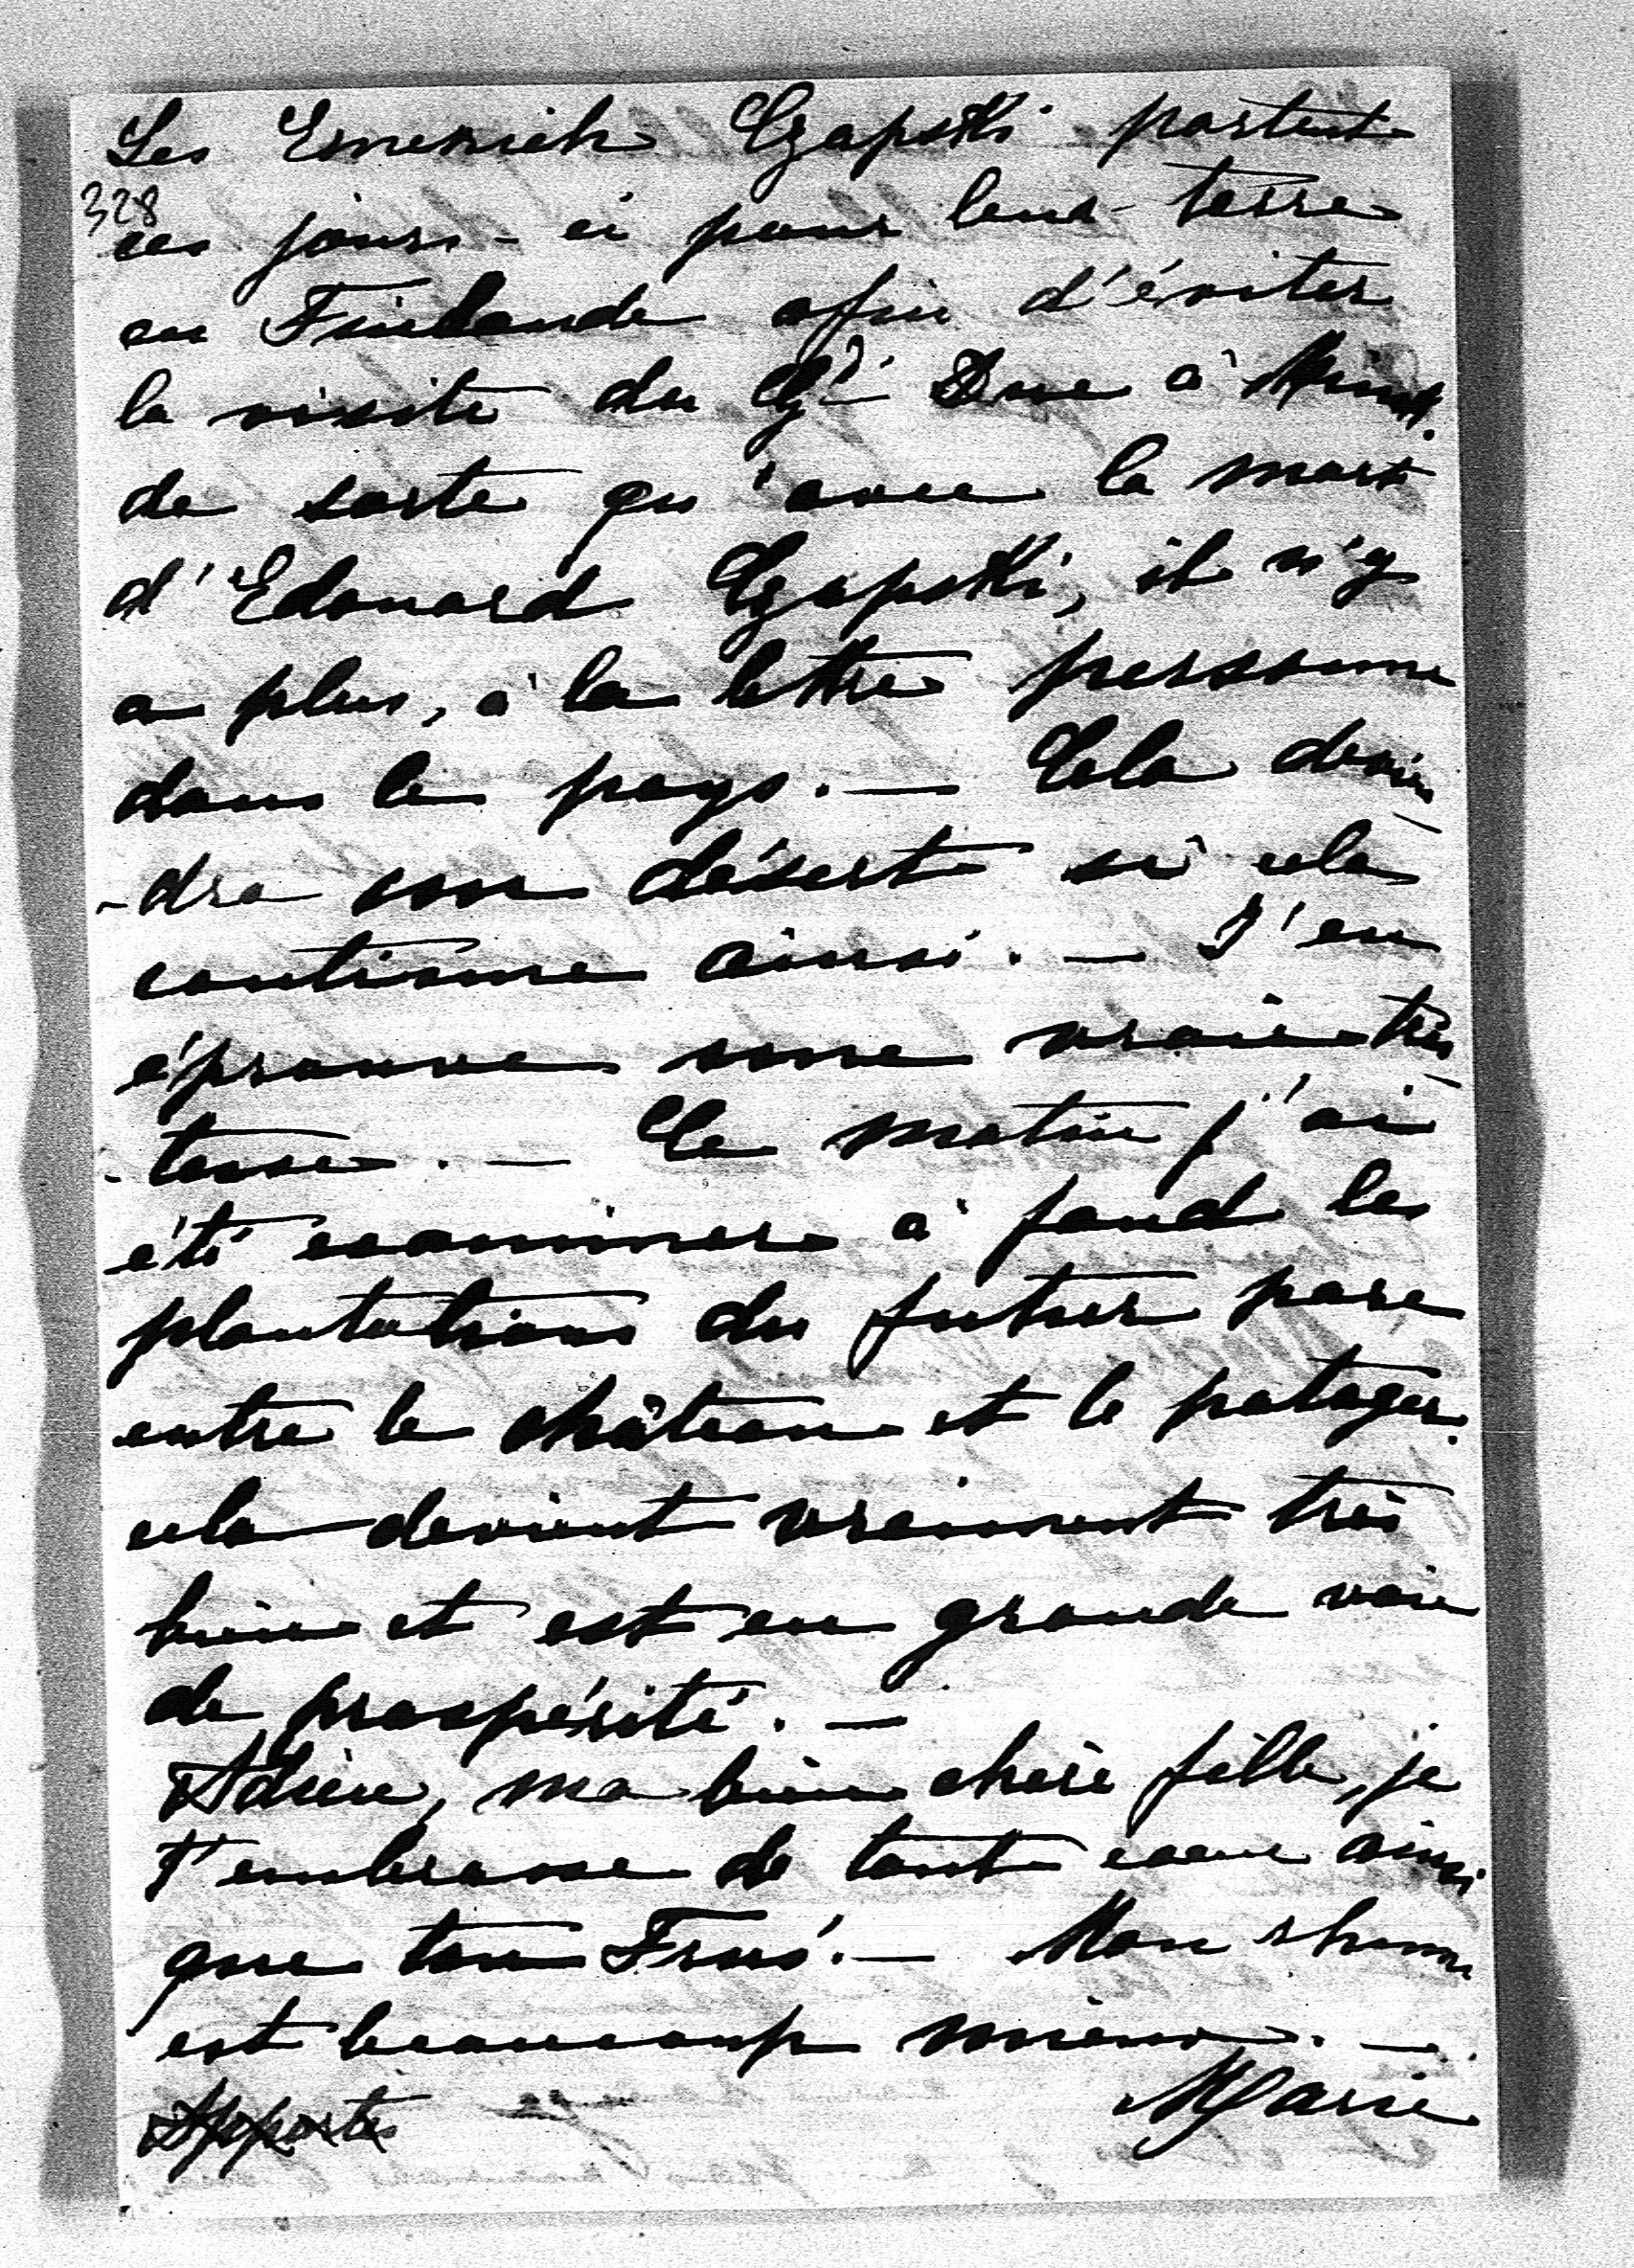 Les Emerich Czapski partent
328
ces jours-ci pour leur terre
en Finlande afin d'éviter
la visite du Gd Duc à Minsk.
de sorte qu'avec la mort
d'Edouard Czapski, il n'y
a plus, à la lettre personne
dans le pays. — Cela devien
-dra un désert si cela
continue ainsi. — J'en
éprouve une vraie tris
-tesse. — Ce matin j'ai
été examiner à fond les
plantations du futur parc
entre le château et le potager.
cela devient vraiment très
bien et est en grande voie
de prospérité. —
Adieu, ma bien chère fille, je
t'embrasse de tout cœur ainsi
que ton . — Mon rhume
est beaucoup mieux. —
Marie
Apportes